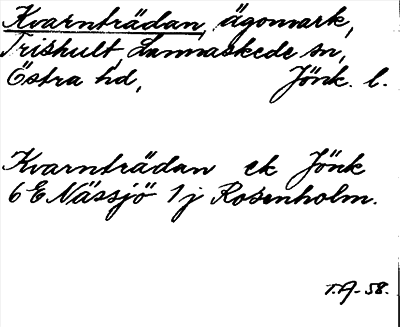 Kvarnträdan, ägomark,
Trishult, Lannaskede sn,
Östra hd, Jönk. l.
Kvarnträdan ek Jönk
6E Nässjö 1j Rosenholm.
T.A-58.